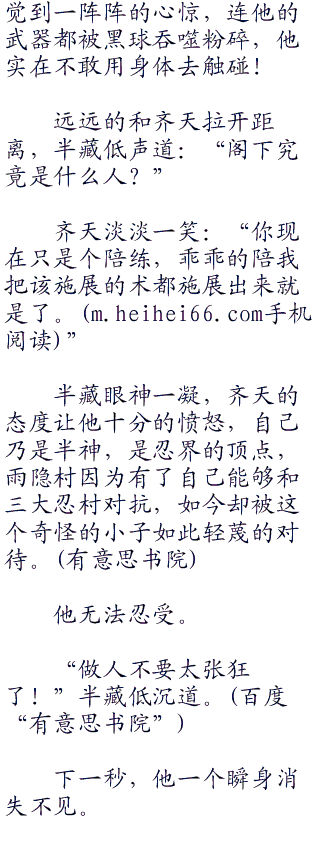 觉到一阵阵的心惊，连他的
武器都被黑球吞噬粉碎，他
实在不敢用身体去触碰！
远远的和齐天拉开距
离，半藏低声道：“阁下究
竟是什么人？”
齐天淡淡一笑：“你现
在只是个陪练，乖乖的陪我
把该施展的术都施展出来就
是了。(m.heihei66.com手机
阅读)”
半藏眼神一凝，齐天的
态度让他十分的愤怒，自己
乃是半神，是忍界的顶点，
雨隐村因为有了自己能够和
三大忍村对抗，如今却被这
个奇怪的小子如此轻蔑的对
待。(有意思书院)
他无法忍受。
“做人不要太张狂
了！”半藏低沉道。(百度
“有意思书院”)
下一秒，他一个瞬身消
失不见。